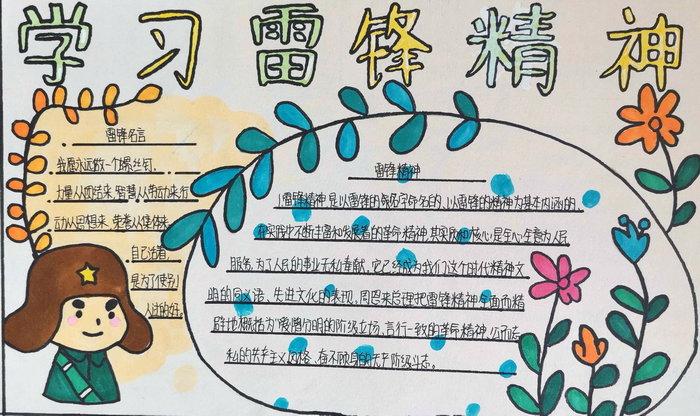 学习雷锋精神
雷锋名言
我愿永远做一个螺丝钉.
力量从团结来,智慧从劳动来,行
动从思想来,荣誉从集体来.
自己活着,
是为了使别
人过的好.
雷锋精神
雷锋精神是以雷锋的名字命名的、以雷锋的精神为基本内涵的、
在实践中不断丰富和发展着的革命精神,其实质和核心是全心全意为人民
服务,为了人民的事业无私奉献.它已经成为我们这个时代精神文
明的同义语、先进文化的表现.周恩来总理把雷锋精神全面而精
辟地概括为"憎爱分明的阶级立场、言行一致的革命精神、公而忘
私的共产主义风格、奋不顾身的无产阶级斗志.